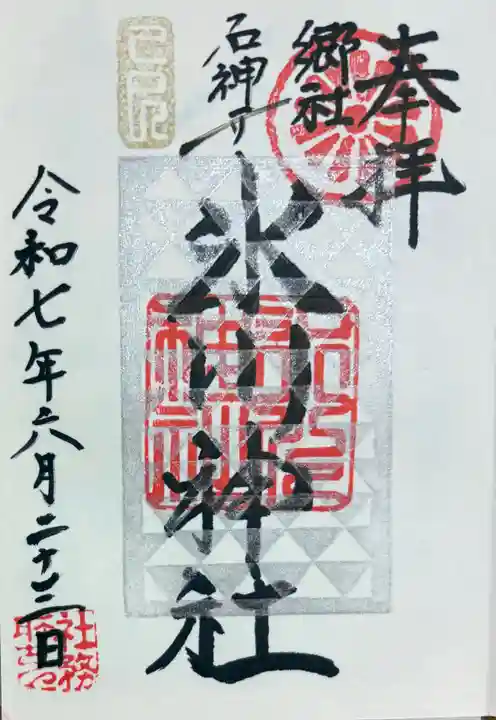 奉拝
郷社
石神井
氷川神社
令和七年六月二十二日
氷川
神社
社務